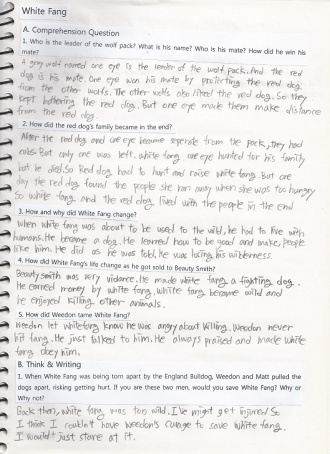 White Fang
A. Comprehension Question
1. Who is the leader of the wolf pack? What is his name? Who is his mate? How did he win his
mate?
A grey wolf named one eye is the leader of the wolf pack. And the red
dog is his mate. One eye won his mate by protecting the red dog
from the other wolfs. The other wolfs also liked the red dog. So they
kept bothering the red dog. But one eye made them make distance
from the red dog.
2. How did the red dog's family became in the end?
After the red dog and one eye became seperate from the pack, they had
cubs. But only one was left. white fang. one eye hunted for his family
but he died. So Red dog had to hunt and raise white fang. But one
day the red dog found the people she ran away when she was too hungry
So white fang and the red dog lived with the people in the end
3. How and why did White Fang change?
When white fang was about to be used to the wild, he had to live with
humans. He became a dog. He learned how to be good and make people
like him. He did as he was told, he was losing his wilderness.
4. How did White Fang's life change as he got sold to Beauty Smith?
Beauty smith was very vidance. He made white fang a fighting dog.
He earned money by white fang. White fang became wild and
he enjoyed killing other animals.
5. How did Weedon tame White Fang?
Weedon let white fang know he was angry about killing. Weedon never
hit fang. He just talked to him. He always praised and made white
fang obey him.
B. Think & Writing
1. When White Fang was being torn apart by the England Bulldog, Weedon and Matt pulled the
dogs apart, risking getting hurt. If you are these two men, would you save White Fang? Why or
Why not?
Back then, white fang was too wild. I've might get injured. So
I think I couldn't have weedon's courage to save white fang.
I wouldn't just stare at it.